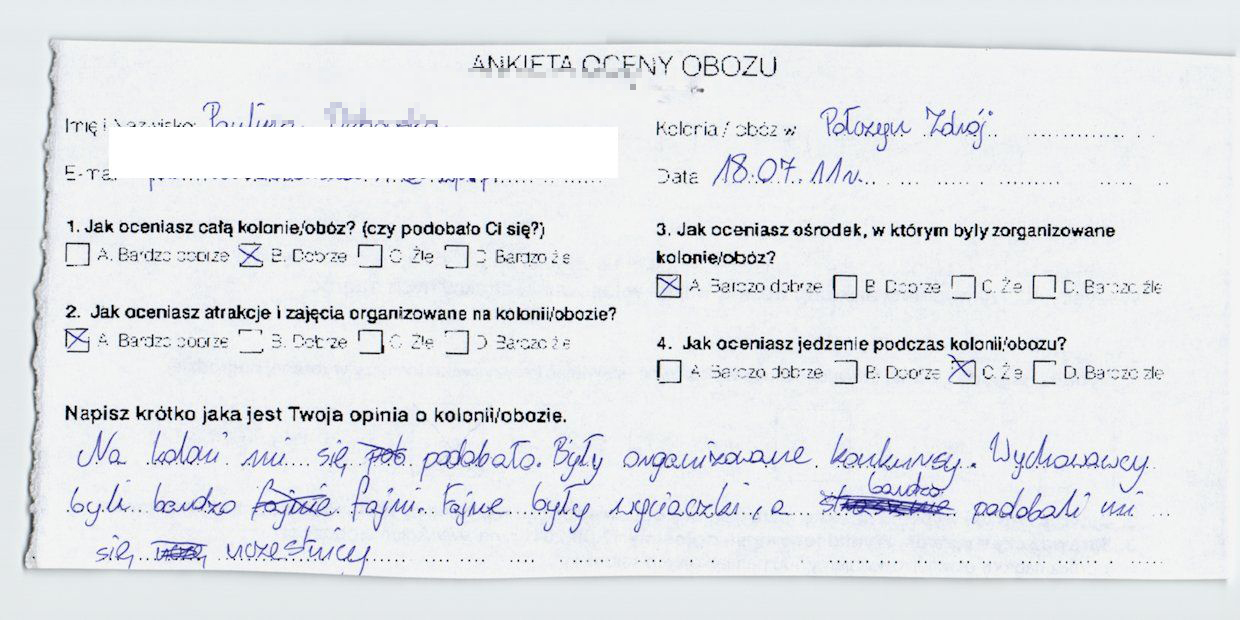 ANKIETA OCENY OBOZU
Imię i Nazwisko: Paulina
Kolonia / obóz w Połczyn Zdrój
E-ma
Data 18.07.11r.
1. Jak oceniasz całą kolonie/obóz? (czy podobało Ci się?)
A. Bardzo dobrze B. Dobrze C. Źle D. Bardzo źle
2. Jak oceniasz atrakcje i zajęcia organizowane na kolonii/obozie?
A. Bardzo dobrze B. Dobrze C. Źle D. Bardzo źle
3. Jak oceniasz ośrodek, w którym były zorganizowane
kolonie/obóz?
A. Bardzo dobrze B. Dobrze C. Źle D. Bardzo źle
4. Jak oceniasz jedzenie podczas kolonii/obozu?
A. Bardzo dobrze B. Dobrze C. Źle D. Bardzo źle
Napisz krótko jaka jest Twoja opinia o kolonii/obozie.
Na koloni mi się pob podobało. Były organizowane konkursy. Wychowawcy
byli bardzo fajnie fajni. Fajne były wycieczki, a strasznie bardzo podobali mi
się uczestnicy